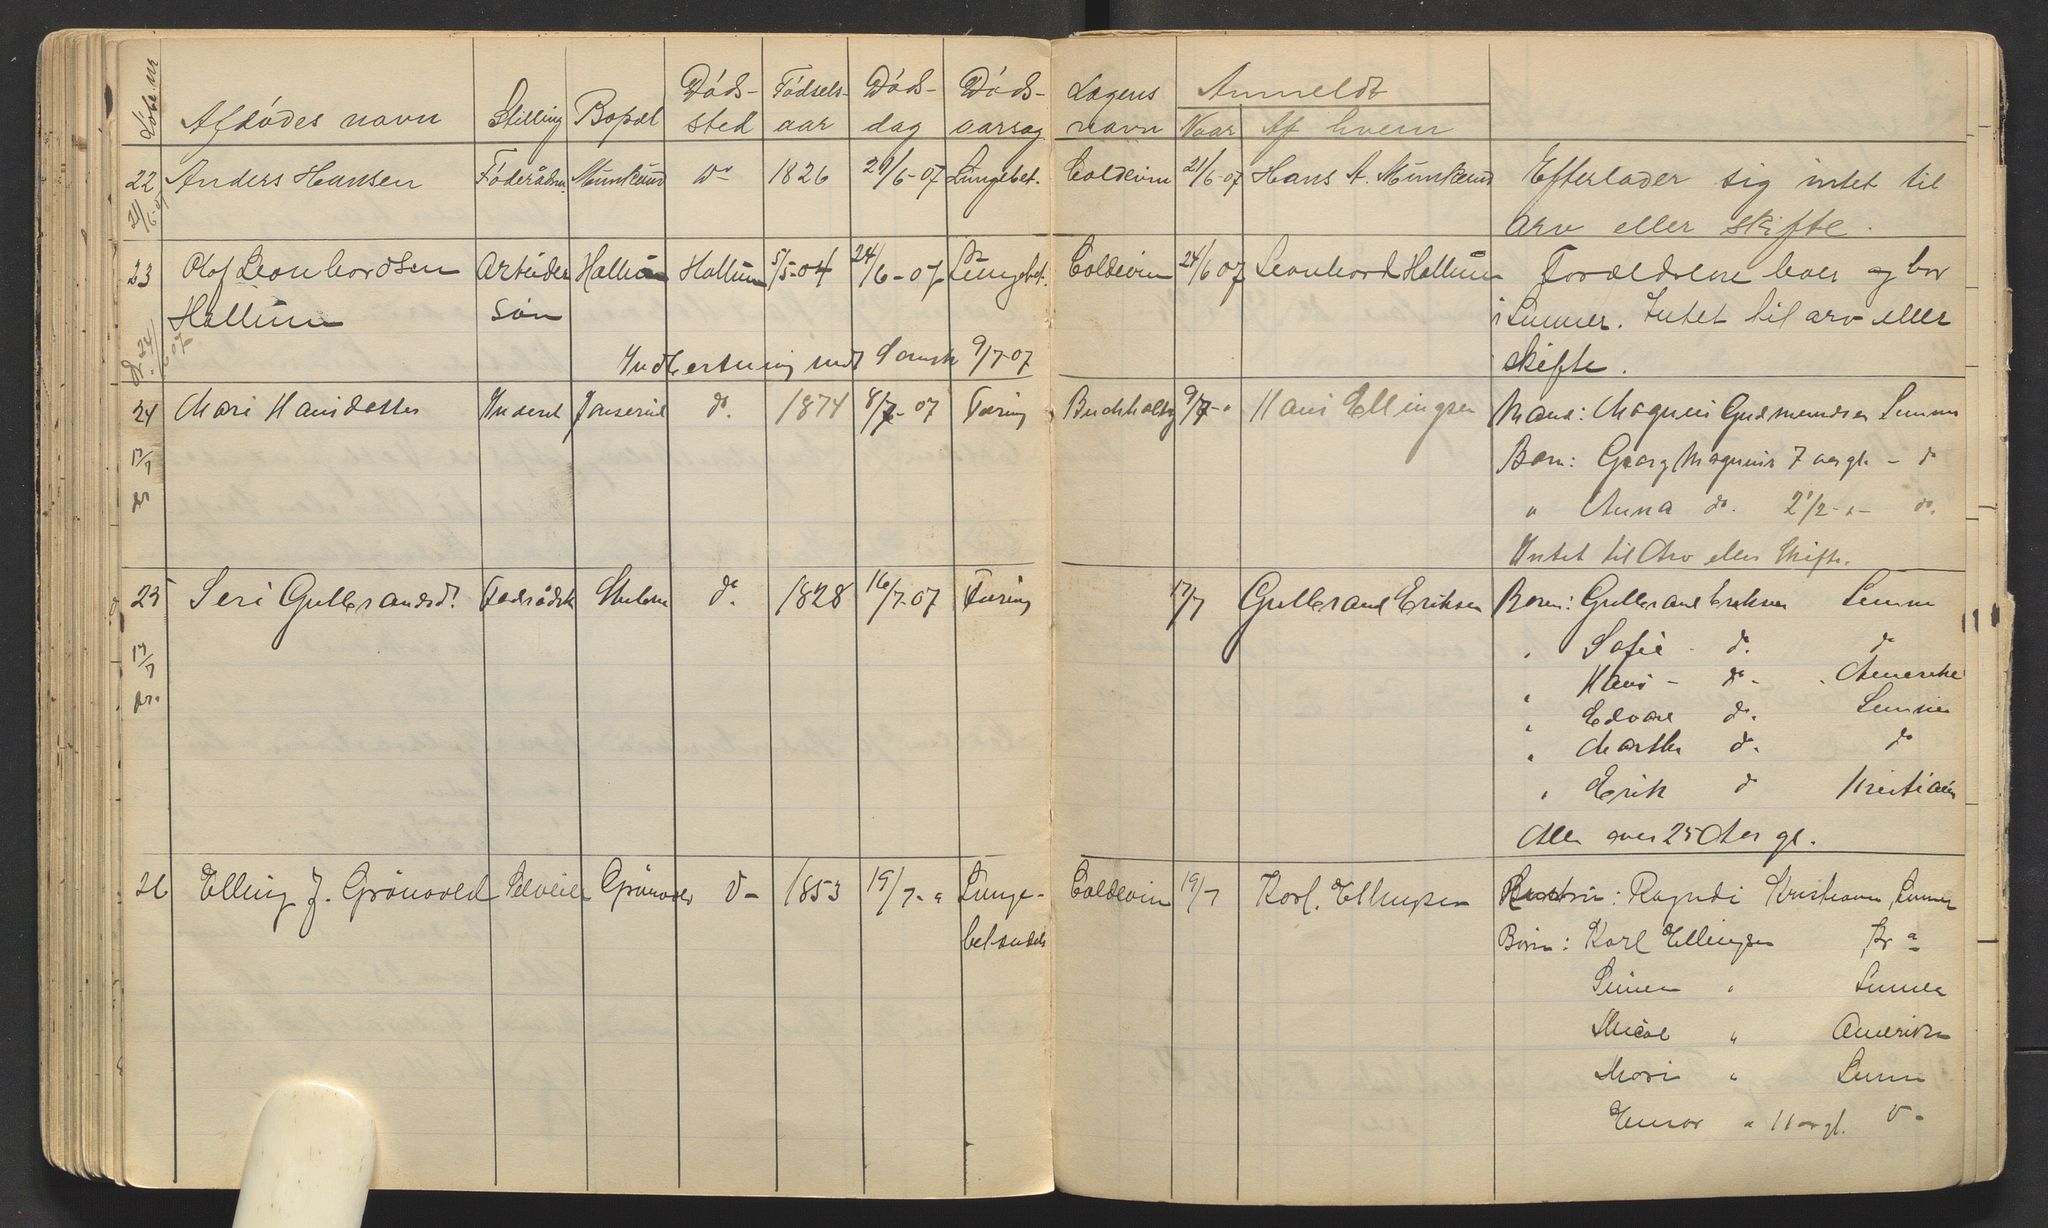 Løbe nr Afdødes navn Stilling Bopæl Døds-sted Fødsels-aar Døds-dag Døds-aarsag Lægens navn Anmeldt Naar Af hvem
22 Anders Hansen Føderådm. Munkerud Do 1826 21/6-07 Lungebet. Coldevin 21/6-07 Hans A. Munkerud Efterlader sig intet til
21/6-07 arv eller skifte.
23 Olof Leonhardsen Arbeider Hallum Hallum 5/5-04 24/6-07 Lungebet. Coldevin 24/6 07 Leonhard Hallum Forældrene lever og bor
Hallum søn i Lunner. Intet til arv eller
24/6 07 Indberetning sendt Sorensk 9/7-07 skifte.
24 Mari Hansdatter Inderst do. 1874 8/7-07 Tæring Buchholtz 9/7-" Hans Ellingsen Mand: Magnus Gudmundsen Lunner
17/7 Børn: Georg Magnus 7 aar gl. - do
" Anna do. 2 1/2 -"- do.
Intet til Arv eller Skifte.
25 Seri Gulbrandsd. Føderådsk do. 1828 16/7-07 Tæring 17/7 Gulbrand Eriksen Børn: Gulbrand Eriksen Lunner
" Sofie - do. do
17/7 " Hans - do - " Amerika
" Edvard do. Lunner
" Marthe do. do
" Erik do Kristiania
Alle over 25 Aar gl.
26 Elling J. Grønvold Selveier Grønvold D- 1853 19/7-" Lunge- Coldevin 19/7 Karl Ellingsen Hustru: Ragndi Kristiansen, Lunner
betændelse Børn: Karl Ellingsen Kr a
Simen " Lunner
" Amerika
Mari " Lunner
Einar " 11 aar gl. D-